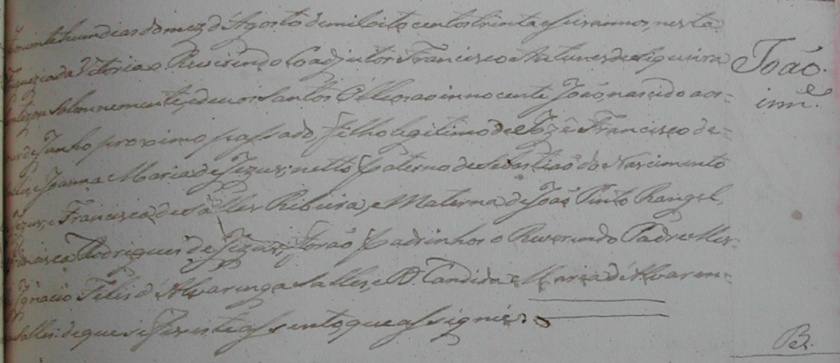 e hum dias do mez de Agosto de mil oito centos trinta e seis annos, nesta
Freguezia da Vitoria o Reverendo Coadjutor Francisco Antunes de Siqueira
baptizou solemnemente, e deu os Santos Oleos ao innocente João, nascido aos
de Junho proximo passado, filho legitimo de Jozé Francisco de
e Joanna Maria de Jezus; netto Paterno de Sebastião do Nascimento
e Francisca de Salles Ribeira, e Materna de João Pinto Rangel,
Rodrigues de Jezus. Forão Padrinhos o Reverendo Padre
Ignacio Felis d'Alvarenga Salles, e D. Candida Maria d'Alvaren-
Salles: de que se fez este assento que assignei.
João
inn.e
B.